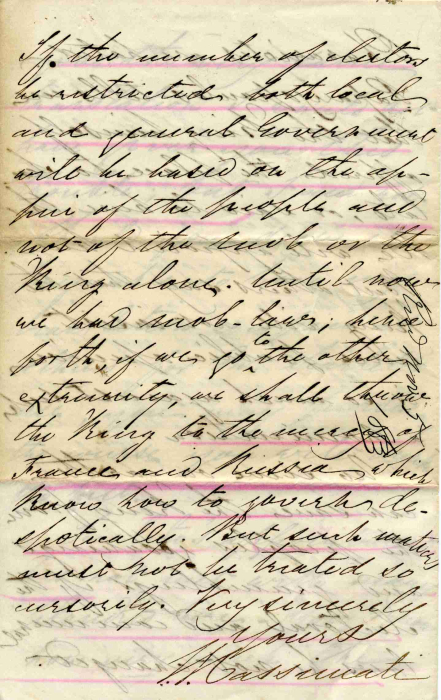 If the number of electors
be restricted both local
and general Government
will be based on the ap-
of the people and
not of the mob or the
King alone. Until now
we had mob-laws; hence
forth, if we go to the other
extremity, we shall throw
the King to the mercy of
France and Russia which
know how to govern de-
spotically. But such matters
must not be treated so
cursorily. Very sincerely
Yours
Cassimati